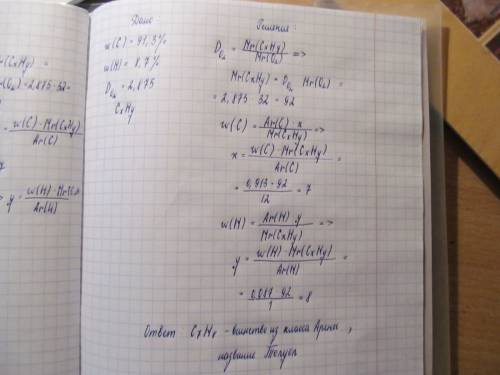 r(CxHy) =
r(O₂) = 2,875·32 =
= w(C)·Mr(CxHy)
Ar(C)
7
y = w(H)·Mr(Cx
Ar(H)
Дано
w(C) = 91,3%
w(H) = 8,7%
D O₂ = 2,875
CxHy
Решение:
D O₂ = Mr(CxHy) / Mr(O₂) =>
Mr(CxHy) = D O₂ · Mr(O₂) =
= 2,875 · 32 = 92
w(C) = Ar(C) · x / Mr(CxHy) =>
x = w(C) · Mr(CxHy) / Ar(C) =
= 0,913 · 92 / 12 = 7
w(H) = Ar(H) · y / Mr(CxHy) =>
y = w(H) · Mr(CxHy) / Ar(H) =
= 0,087 · 92 / 1 = 8
Ответ C₇H₈ - вещество из класса Арены,
название Толуол